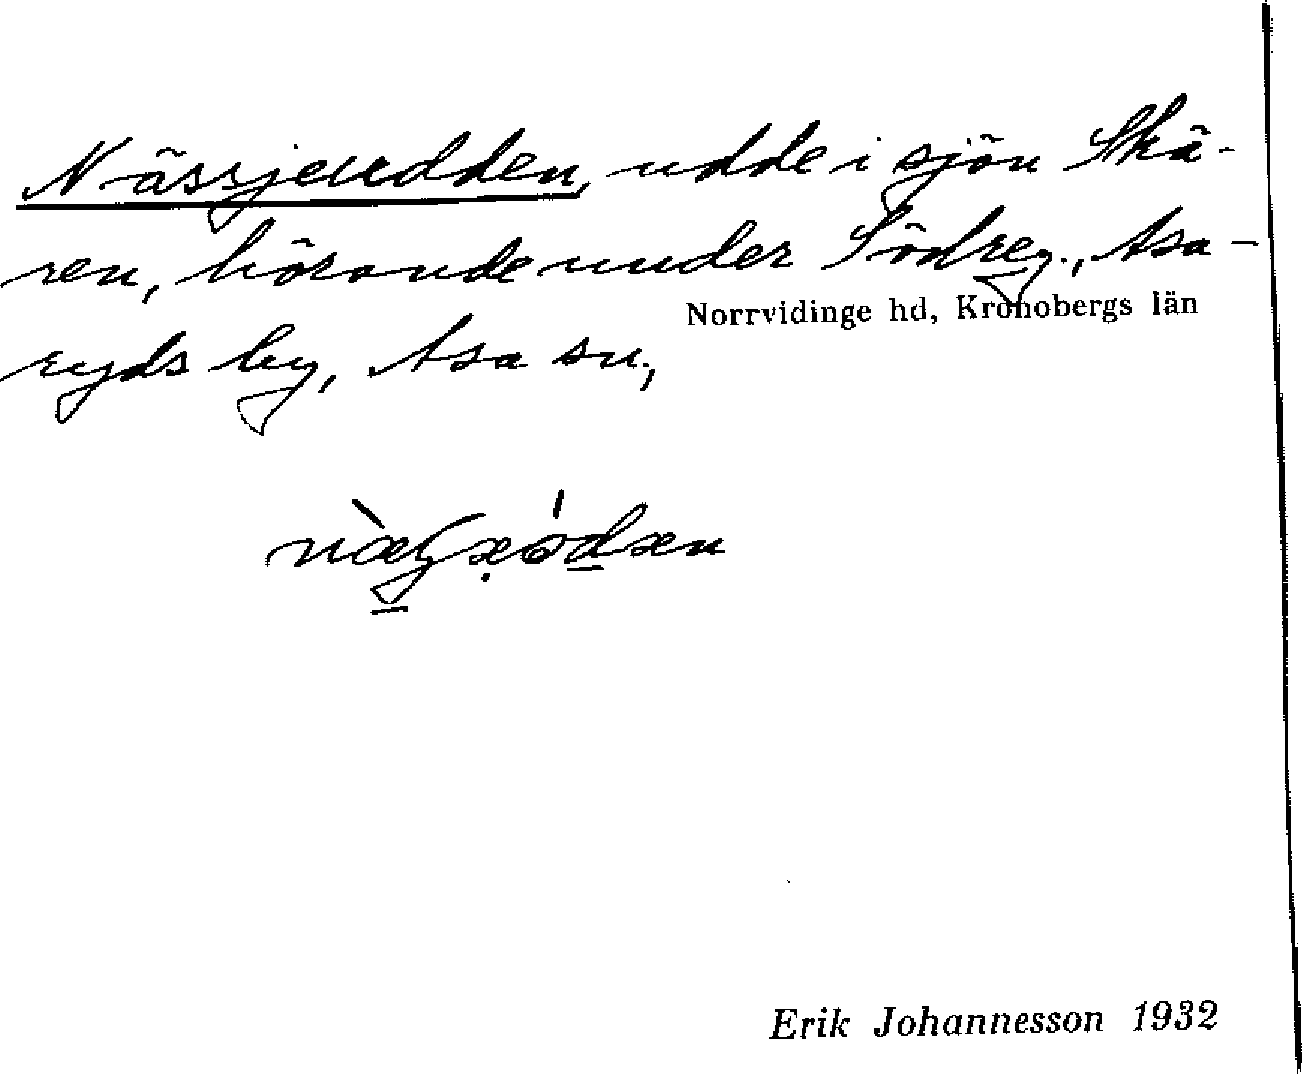 Nässjeudden, udde i sjön Skä-
ren, hörande under Södreg., Asa-
Norrvidinge hd, Kronobergs län
ryds by, Asa sn,
Erik Johannesson 1932